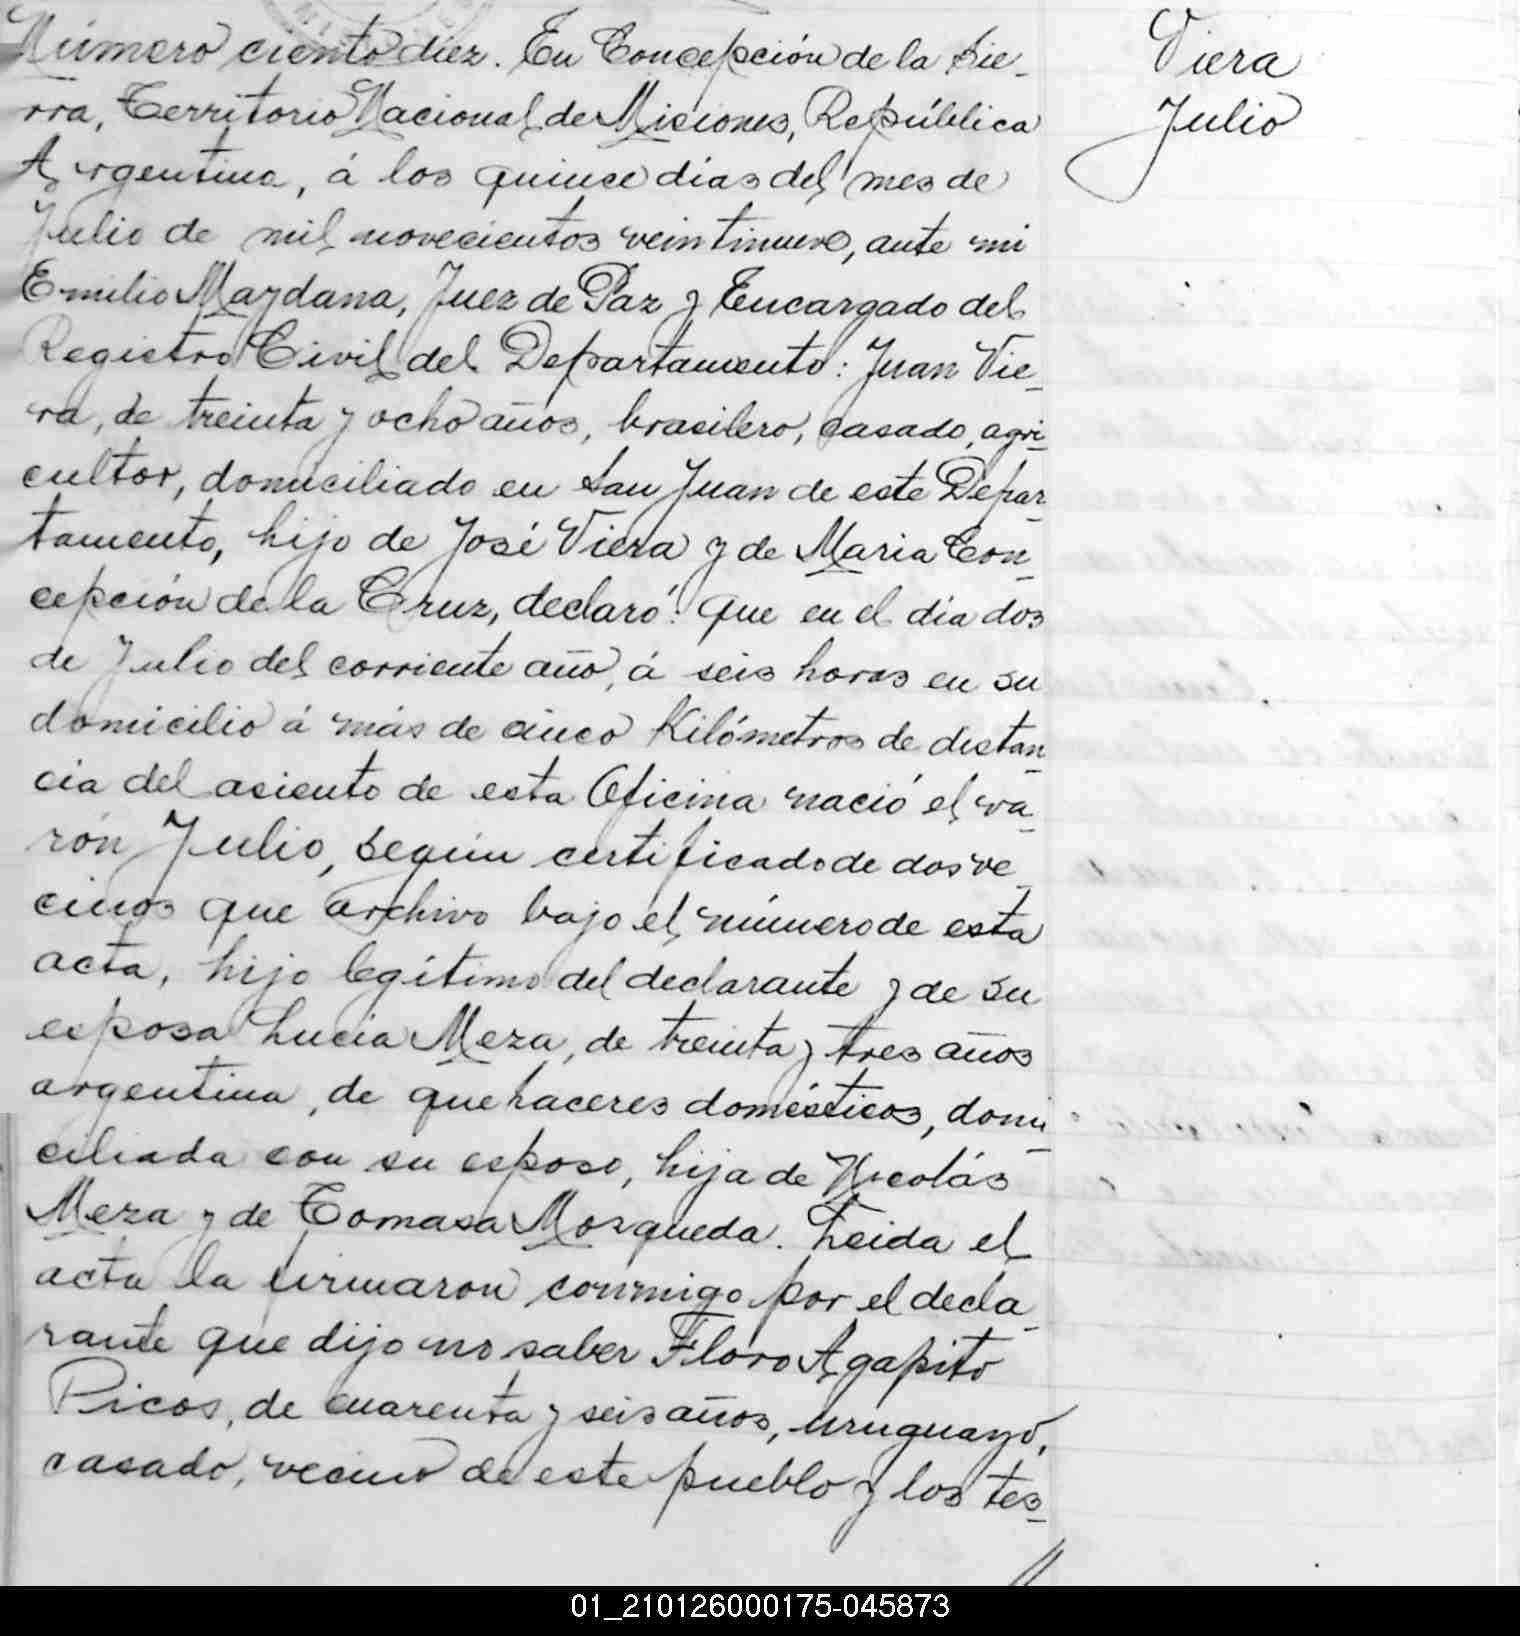 Número ciento diez. En Concepción de la Sie-
rra, Territorio Nacional de Misiones, República
Argentina, á los quince dias del mes de
Julio de mil novecientos veintinueve, ante mi
Emilio Maydana, Juez de Paz y Encargado del
Registro Civil del Departamento: Juan Vie-
ra, de treinta y ocho años, brasilero, casado, agri-
cultor, domiciliado en San Juan de este Depar-
tamento, hijo de José Viera y de Maria Con-
cepción de la Cruz, declaró: Que en el dia dos
de Julio del corriente año, á seis horas en su
domicilio á más de cinco Kilómetros de distan-
cia del asiento de esta Oficina nació el va-
rón Julio, según certificado de dos ve-
cinos que archivo bajo el número de esta
acta, hijo legítimo del declarante y de su
esposa Lucia Meza, de treinta y tres años
argentina, de quehaceres domésticos, domi-
ciliada con su esposo, hija de Nicolás
Meza y de Tomasa Mosqueda. Leida el
acta la firmaron conmigo por el decla-
rante que dijo no saber Floro Agapito
Picos, de cuarenta y seis años, uruguayo,
casado, vecino de este pueblo y los tes-
Viera
Julio
01_210126000175-045873